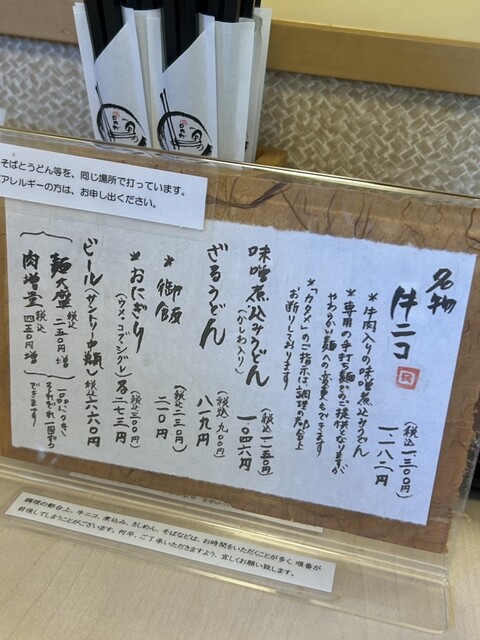 そばとうどん等を、同じ場所で打っています。
アレルギーの方は、お申し出ください。
名物
牛ニコ
(税込一三〇〇円)
一、一八二円
*牛肉入りの味噌煮込みうどん
*専用の手打ち麺でのご提供となりますが
やわらかい麺への変更もできます
*「カタメ」のご指示は、調理の都合上
お断りしております
味噌煮込みうどん
(かしわ入り)
(税込一一五〇円)
一〇四六円
ざるうどん
(税込九〇〇円)
八一九円
*御飯
(税込二三〇円)
二一〇円
*おにぎり
(税込三〇〇円)
(ウメ、コブ、シグレ)各二七三円
ビール(サントリー中瓶)税込八六〇円
麺大盛 税込二五〇円増
肉増量 税込四五〇円増
一品につき
それぞれ一回のみ
できます
調理の都合上、牛ニコ、煮込み、きしめん、そばなどは、お時間をいただくことが多く、順番が
前後してしまうことがございます。何卒、ご了承いただきますよう、宜しくお願い致します。